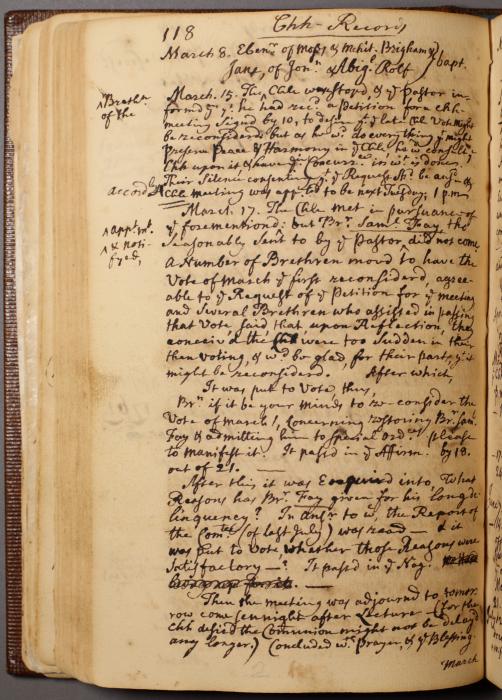 118 Chh- Records
March 8. Ebenr of Moses & Mehit. Brigham &
Jane, of Jonn & Abigl Rolf } bapt.
March. 15. The Chh was stopd, & ye Pastor in-
^Brethn of the
formd ym yt he had recd a Petition for a chh-
meeting Signd by 10, to desire yt ye late Chh Vote might
be reconsiderd: but as he wd do every thing yt might
preserve Peace & Harmony in ye Chh he wd consult ye
Chh upon it & have ye Concurrce in wt is done.
Their Silence consenting yt ye Request shd be
accordly ^ Chh meeting was appted to be next Tuesday, 1 p.m.
March. 17. The Chh met in pursuance of
^appt mt.
ye forementiond: but Br. Saml Fay, tho
^ & noti-
fyed,
Seasonably Sent to by ye Pastor, did not come.
A Number of Brethren movd to have the
Vote of March ye first reconsiderd, agree-
able to ye Request of ye Petition for ye meeting
and Several Brethren who assisted in passing
that Vote, said, that upon Reflection, they
conceivd the Chh were too Sudden in their
then voting, & wd be glad, for their parts, yt it
might be reconsiderd. After which,
It was put to Vote, thus,
Brn if it be your Minds to re-consider the
Vote of March 1, Concerning restoring Br. Sam.
Fay & admitting him to special Ordces please
to manifest it. It passd in ye Affirm. by 18.
out of 21. —
After this it was Enquired into, What
Reasons has Br. Fay given for his long de-
linquency? In ansr to wc, the Report of
the Comtee (of last July) was read — & it
was put to Vote whether those Reasons were
Satisfactory —? It passd in ye Neg.
Then the meeting was adjournd to tomor-
row come sennight after Lecture — (for the
Chh desird the Communion might not be delayd
any longer.) Concluded wth Prayer, & ye Blessing.
March